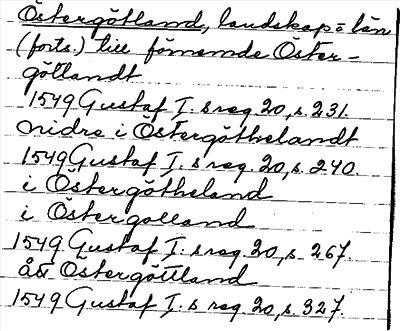 Östergötland, landskap = län
(forts.) till förnemde Öster-
götlandt
1549 Gustaf I.s reg. 20, s. 231.
nidre i Östergöthelandt
1549 Gustaf I.s reg. 20, s. 240.
i Östergötheland
i Östergolland
1549 Gustaf I.s reg. 20, s. 267.
åti Östergöttland
1549 Gustaf I.s reg. 20, s. 327.